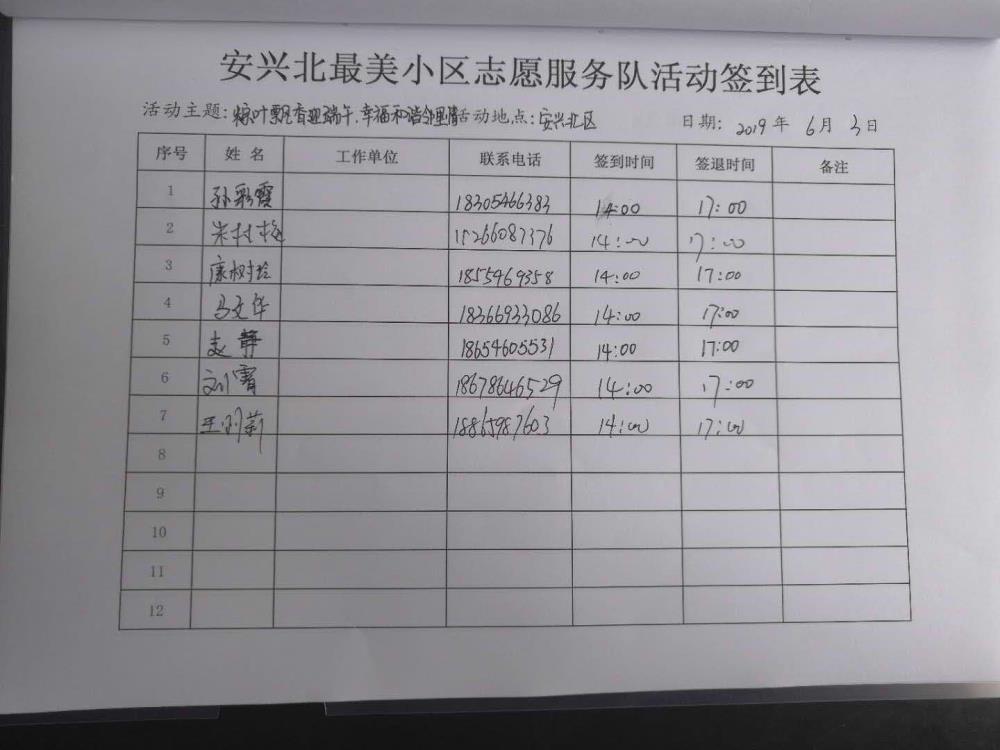 安兴北最美小区志愿服务队活动签到表
活动主题:粽叶飘香迎端午.幸福和谐邻里情 活动地点:安兴北区 日期: 2019 年 6 月 3 日
序号 姓名 工作单位 联系电话 签到时间 签退时间 备注
1 孙彩霞 18305466383 14:00 17:00
2 15266087376 14:00 17:00
3 康树玲 1855469358 14:00 17:00
4 马文华 18366933086 14:00 17:00
5 赵静 18654605531 14:00 17:00
6 刘霄 18678646529 14:00 17:00
7 18865987603 14:00 17:00
8
9
10
11
12